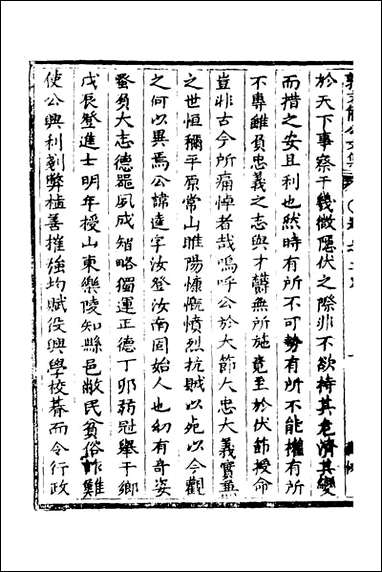 於天下事察于幾微隱伏之際非不欲持其危濟其變
而措之安且利也然時有所不可勢有所不能權有所
不專雖負忠義之志與才欝無所施竟至於伏節授命
豈非古今所痛悼者哉嗚呼公於大節大忠大義實無
之世恒稱平原常山睢陽慷慨憤烈抗賊以死以今觀
之何以異焉公諱逵字汝登汝南固始人也幼有奇姿
蚤負大志德噐夙成智略獨運正德丁卯莇冠舉于鄉
戊辰登進士明年授山東樂陵知縣邑敝民貧俗詐難
使公興利剗弊植善摧強均賦役興學校朞而令行政